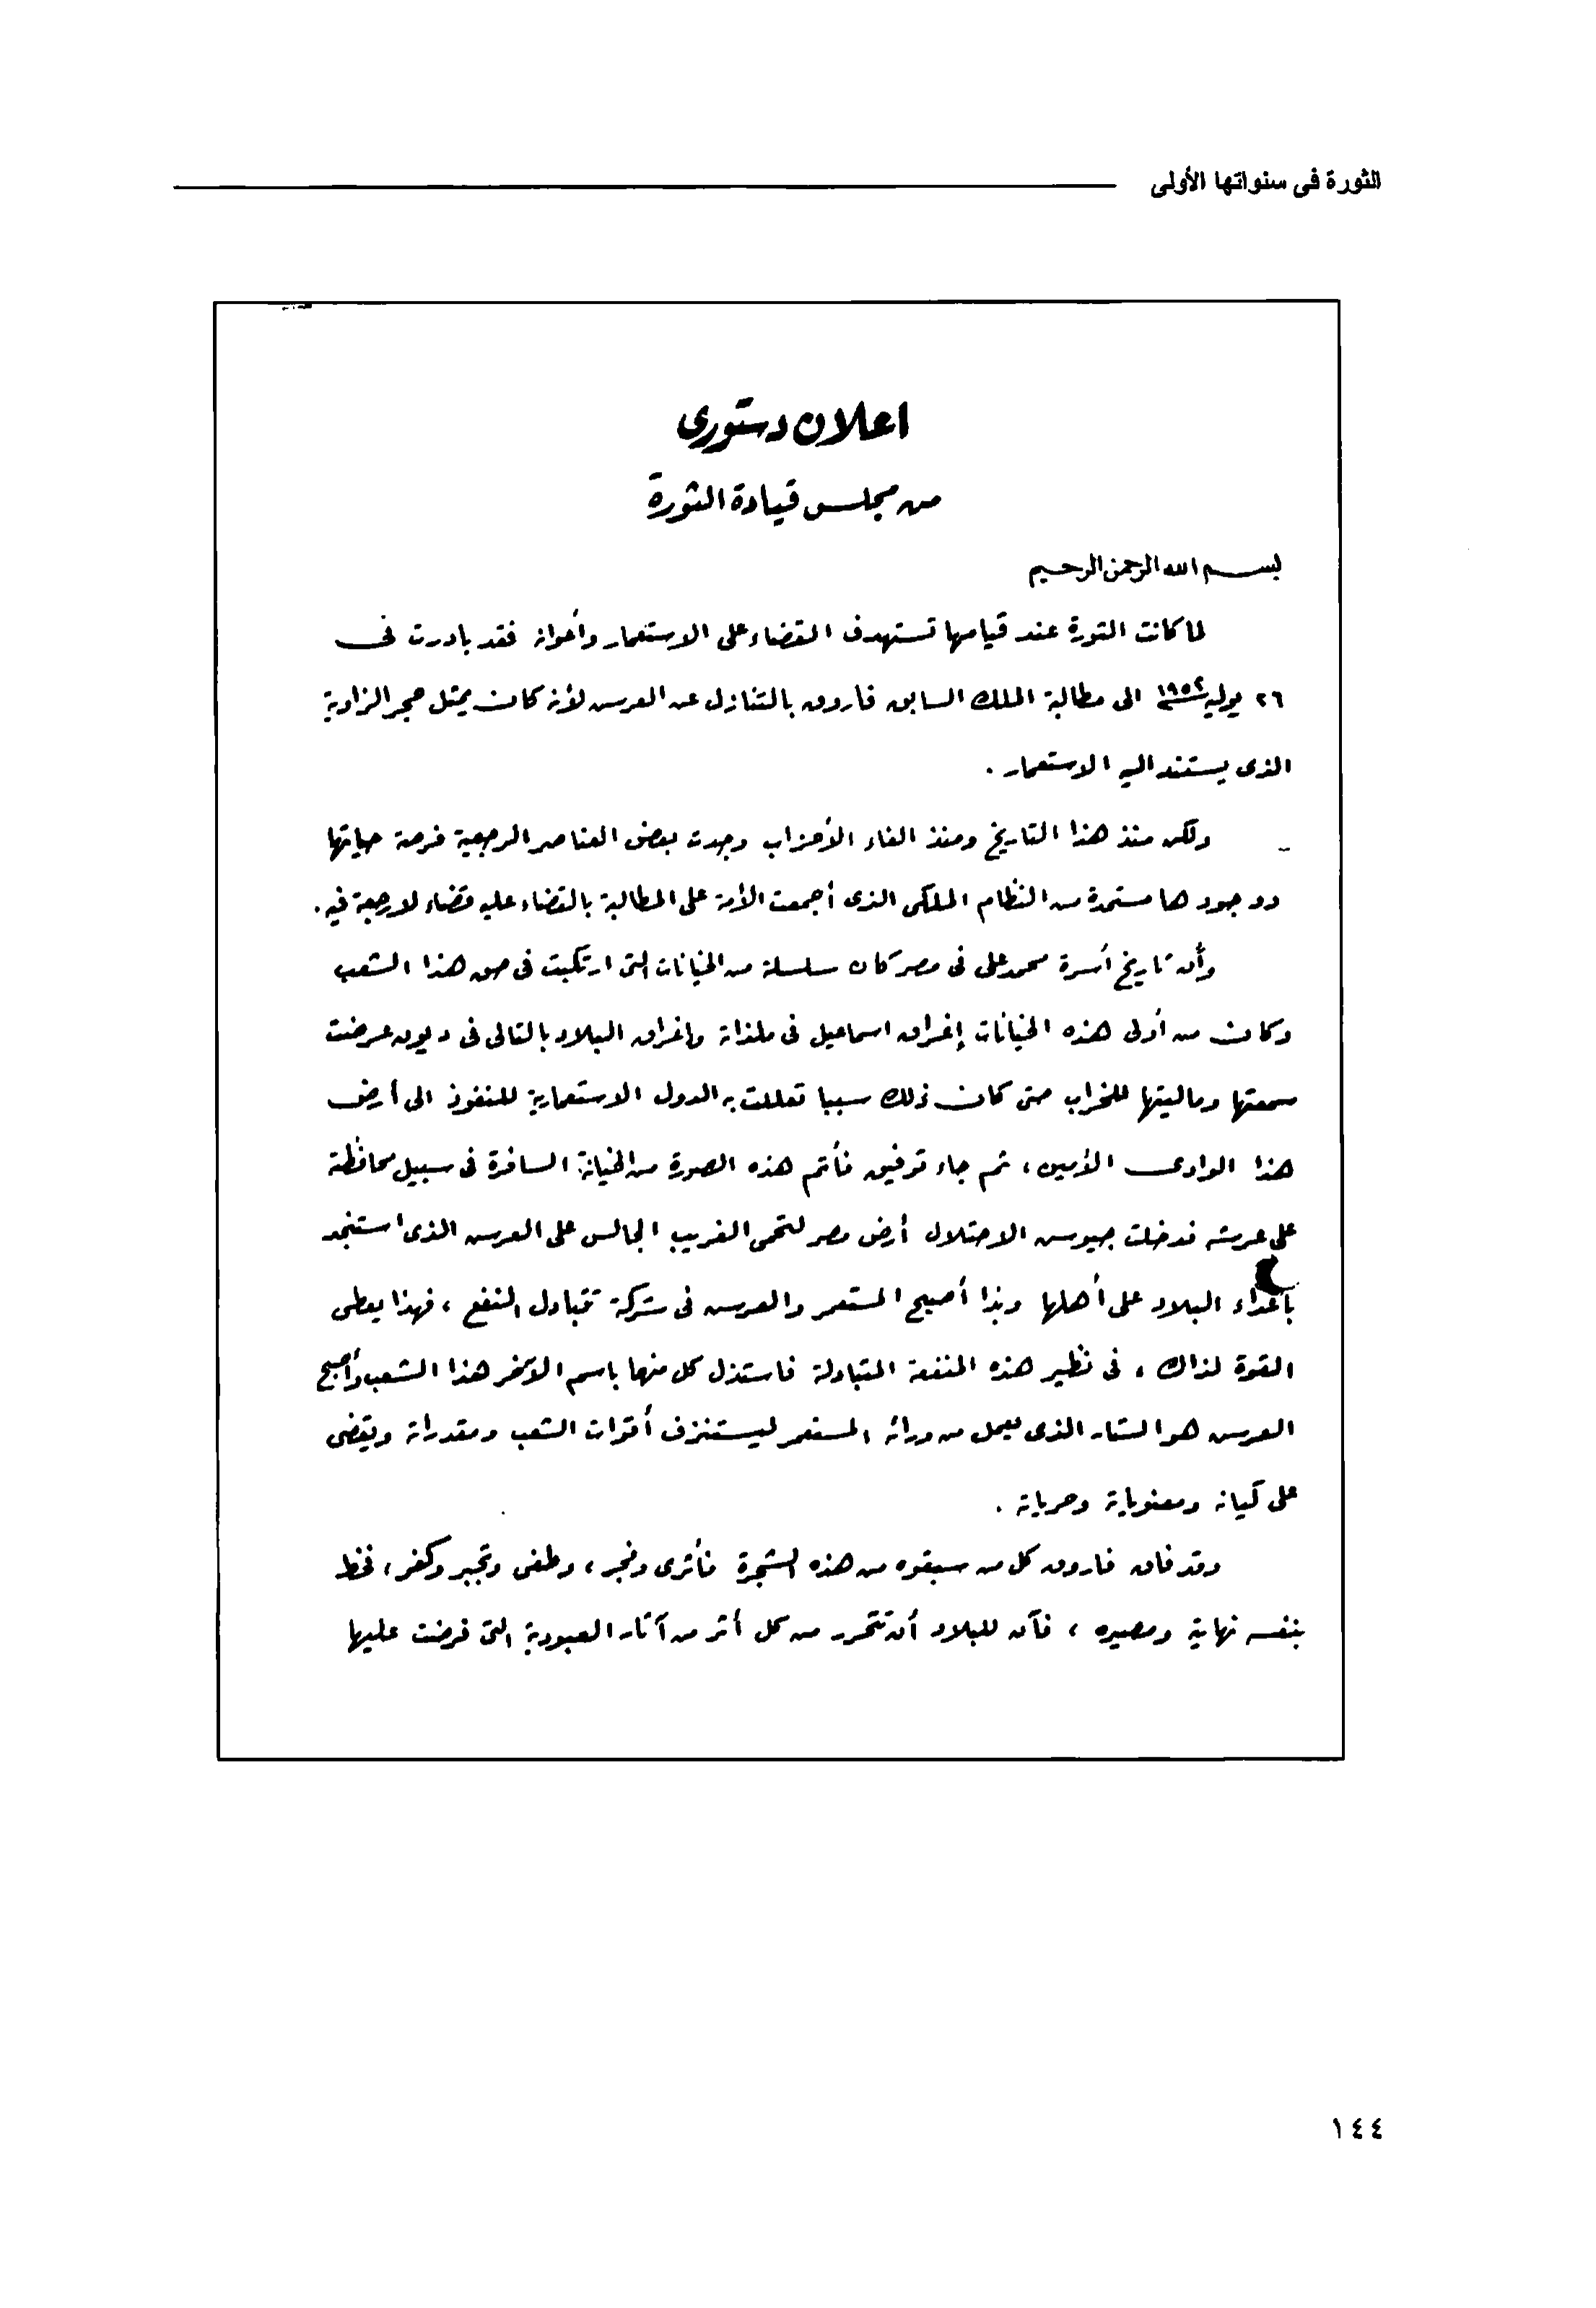 الثورة فى سنواتها الأولى
اعلان دستورى
من مجلس قيادة الثورة
بسم الله الرحمن الرحيم
لما كانت الثورة عند قيامها تستهدف القضاء على الاستعمار وأعوانه فقد بادرت فى
٢٦ يوليه ١٩٥٢ الى مطالبة الملك السابق فاروق بالتنازل عن العرش لأنه كان يمثل حجر الزاوية
الذى يستند اليه الاستعمار .
ولكن منذ هذا التاريخ ومنذ الغاء الأحزاب وجدت بعض العناصر الرجعية فرصة حياتها
ووجودها مستمدة من النظام الملكى الذى أجمعت الأمة على المطالبة بالقضاء عليه قضاء لا رجعة فيه .
وأن تاريخ أسرة محمد على فى مصر كان سلسلة من الخيانات التى ارتكبت فى حق هذا الشعب
وكان من أولى هذه الخيانات إغراق اسماعيل فى ملذاته واغراق البلاد بالتالى فى ديون عرضت
سمعتها وماليتها للخراب حتى كان ذلك سببا تعللت به الدول الاستعمارية للنفوذ الى أرض
هذا الوادى الأمين ، ثم جاء توفيق فأتم هذه الصورة من الخيانة السافرة فى سبيل محافظته
على عرشه فدخلت جيوش الاحتلال أرض مصر لتحمى الغريب الجالس على العرش الذى استنجد
بأعداء البلاد على أهلها وبذا أصبح المستعمر والعرش فى شركة تتبادل النفع ، فهذا يعطى
القوة لذاك ، فى نظير هذه المنفعة المتبادلة فاستذل كل منهما باسم الآخر هذا الشعب وأصبح
العرش هو الستار الذى يعمل من ورائه المستعمر ليستنزف أقوات الشعب ومقدراته ويقضى
على كيانه ومعنوياته وحرياته .
وقد فاق فاروق كل من سبقوه من هذه الشجرة فأثرى وفجر ، وطغى وتجبر وكفر ، فخط
بنفسه نهايته ومصيره ، فآن للبلاد أن تتحرر من كل أثر من آثار العبودية التى فرضت عليها
١٤٤